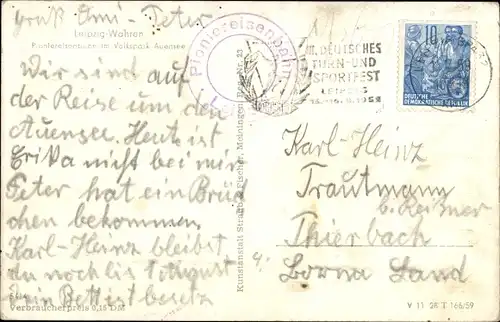 gruß Omi - Peter
Leipzig-Wahren
Pioniereisenbahn im Volkspark Auensee
Wir sind auf
der Reise um den
Auensee. Heute ist
Erika nicht bei mir
Peter hat ein Brü
chen bekommen
Karl-Heinz bleibst
du noch bis
ein Bett ist besetz
Verbraucherpreis 0,15 DM
Kunstanstalt Straub & Fischer, Meiningen
Pioniereisenbahn
III. DEUTSCHES
TURN- UND
SPORTFEST
LEIPZIG
10
DEUTSCHE
DEMOKRATISCHE REPUBLIK
Karl-Heinz
Trautmann
b. Reißner
Thierbach
Borna Land
V 11 28 T 166/59